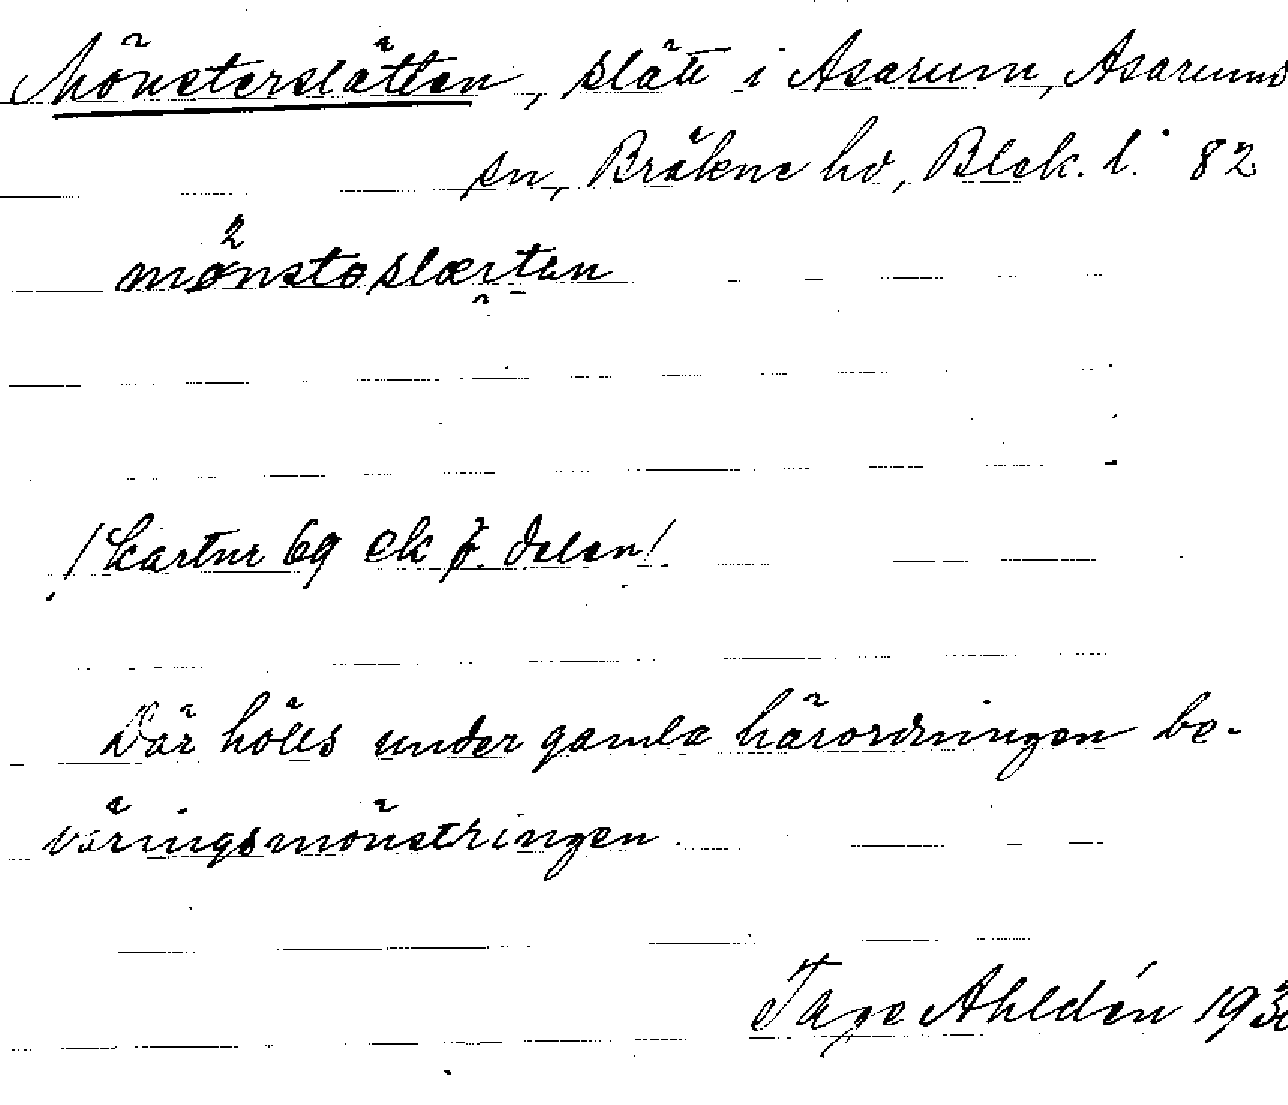 Mönsterslätten, slätt i Asarum, Asarums
sn, Bräkne hd, Blek. l. 82
mønstəslærtən
/Kartnr 69 ek f. delen/
Där hölls under gamla härordningen be-
väringsmönstringen.
Tage Ahldén 193